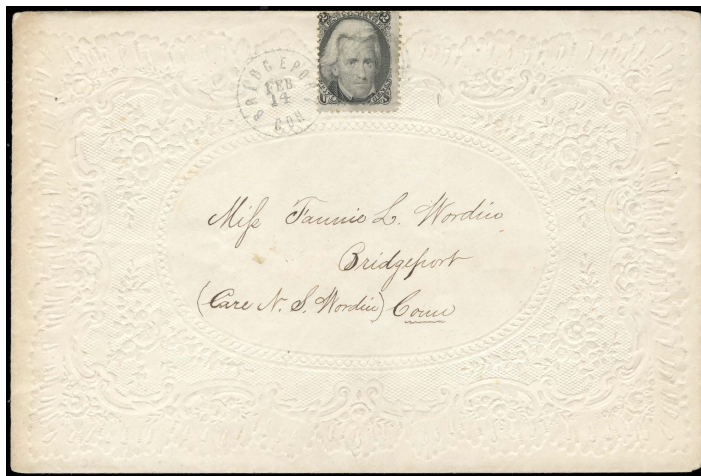 BRIDGEPORT
FEB
14
CON
Miſs Fannie L. Wordin
Bridgeport
(Care N. S. Wordin) Conn